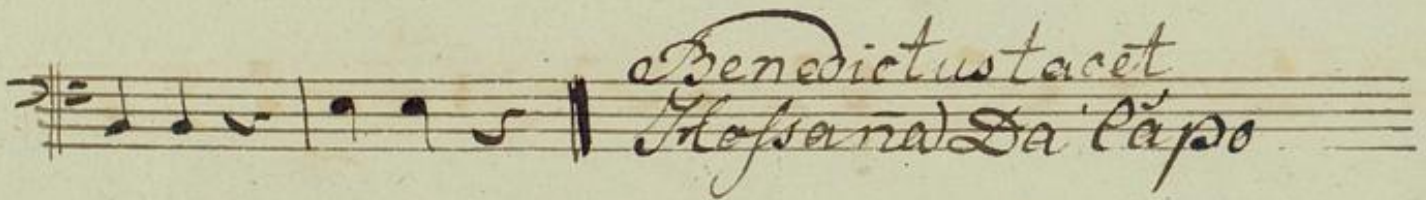 Benedictus tacet
Hoſsaña Da Cãpo